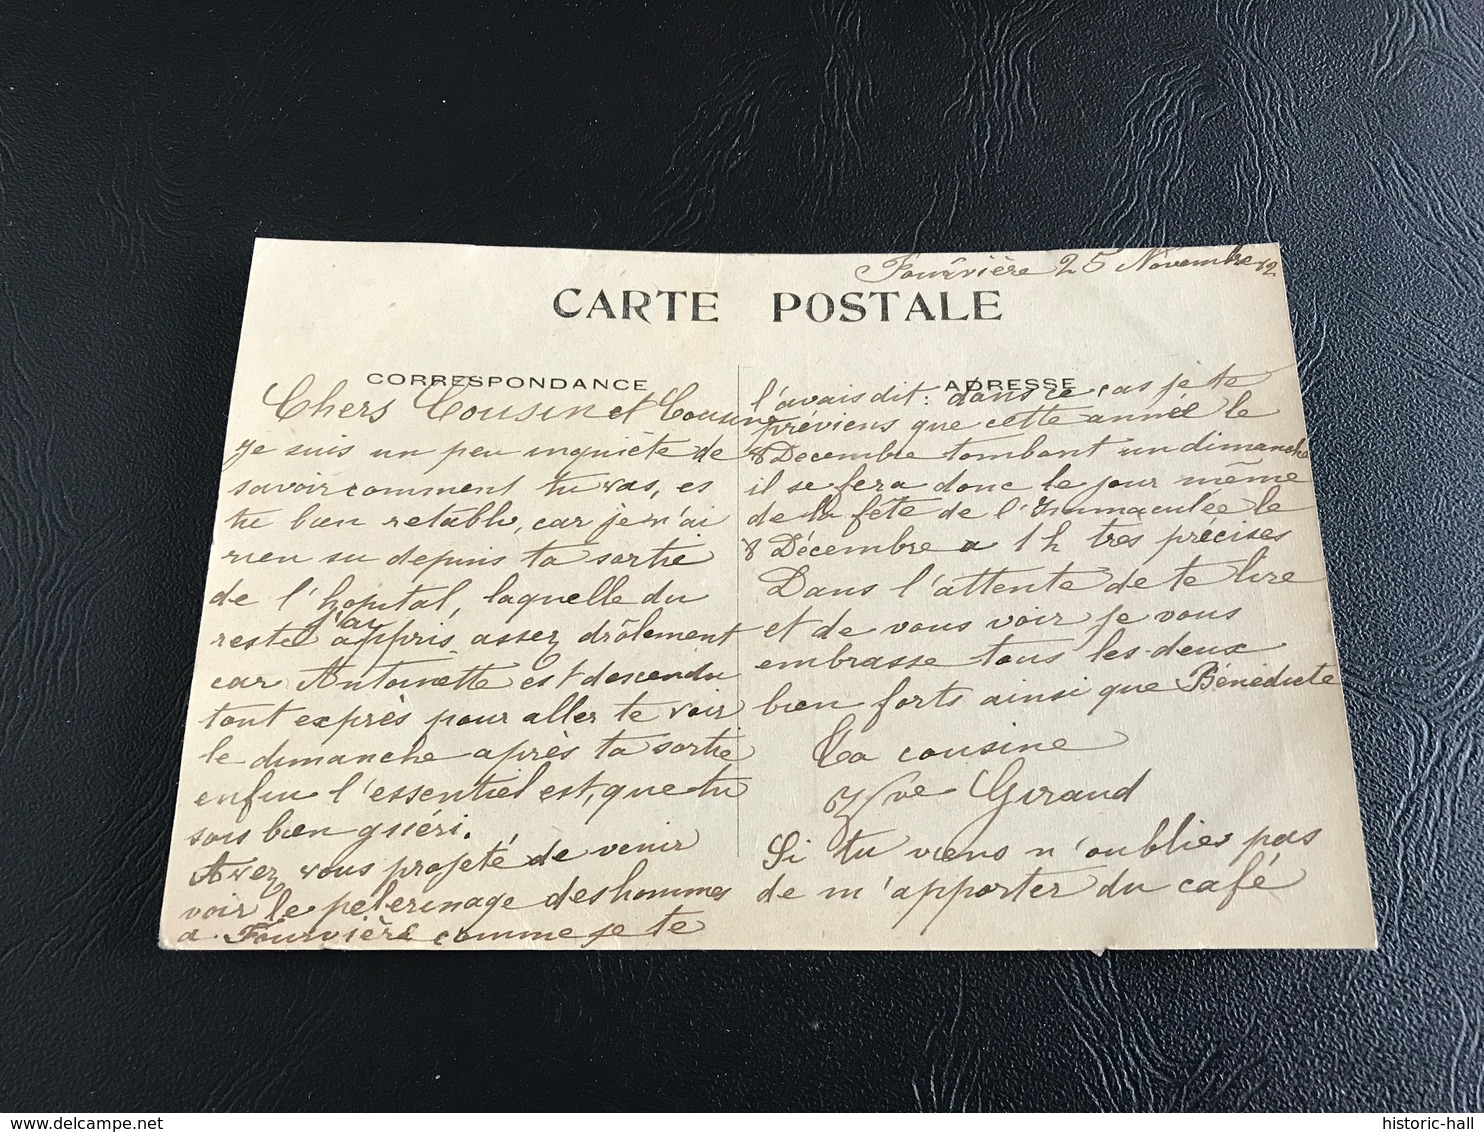 Fourvière 25 Novembre 12
CARTE POSTALE
CORRESPONDANCE
Chers Cousin et Cousine
Je suis un peu inquiète de
savoir comment tu vas, es
tu bien retabli, car je n'ai
rien su depuis ta sortie
de l'hopital, laquelle du
reste j'ai appris assez drôlement
car Antoinette est descendu
tout exprès pour aller te voir
le dimanche après ta sortie
enfin l'essentiel est, que tu
sois bien guéri.
Avez vous projeté de venir
voir le pelerinage des hommes
a Fourvière comme je te
ADRESSE
l'avais dit: dans ce cas je te
préviens que cette année le
8 Décembre tombant un dimanche
il se fera donc le jour même
de la fête de l'Immaculée le
8 Décembre a 1 h très précises
Dans l'attente de te lire
et de vous voir je vous
embrasse tous les deux
bien forts ainsi que Bénédicte
Ta cousine
Vve Giraud
Si tu viens n'oublies pas
de m'apporter du café
historic-hall